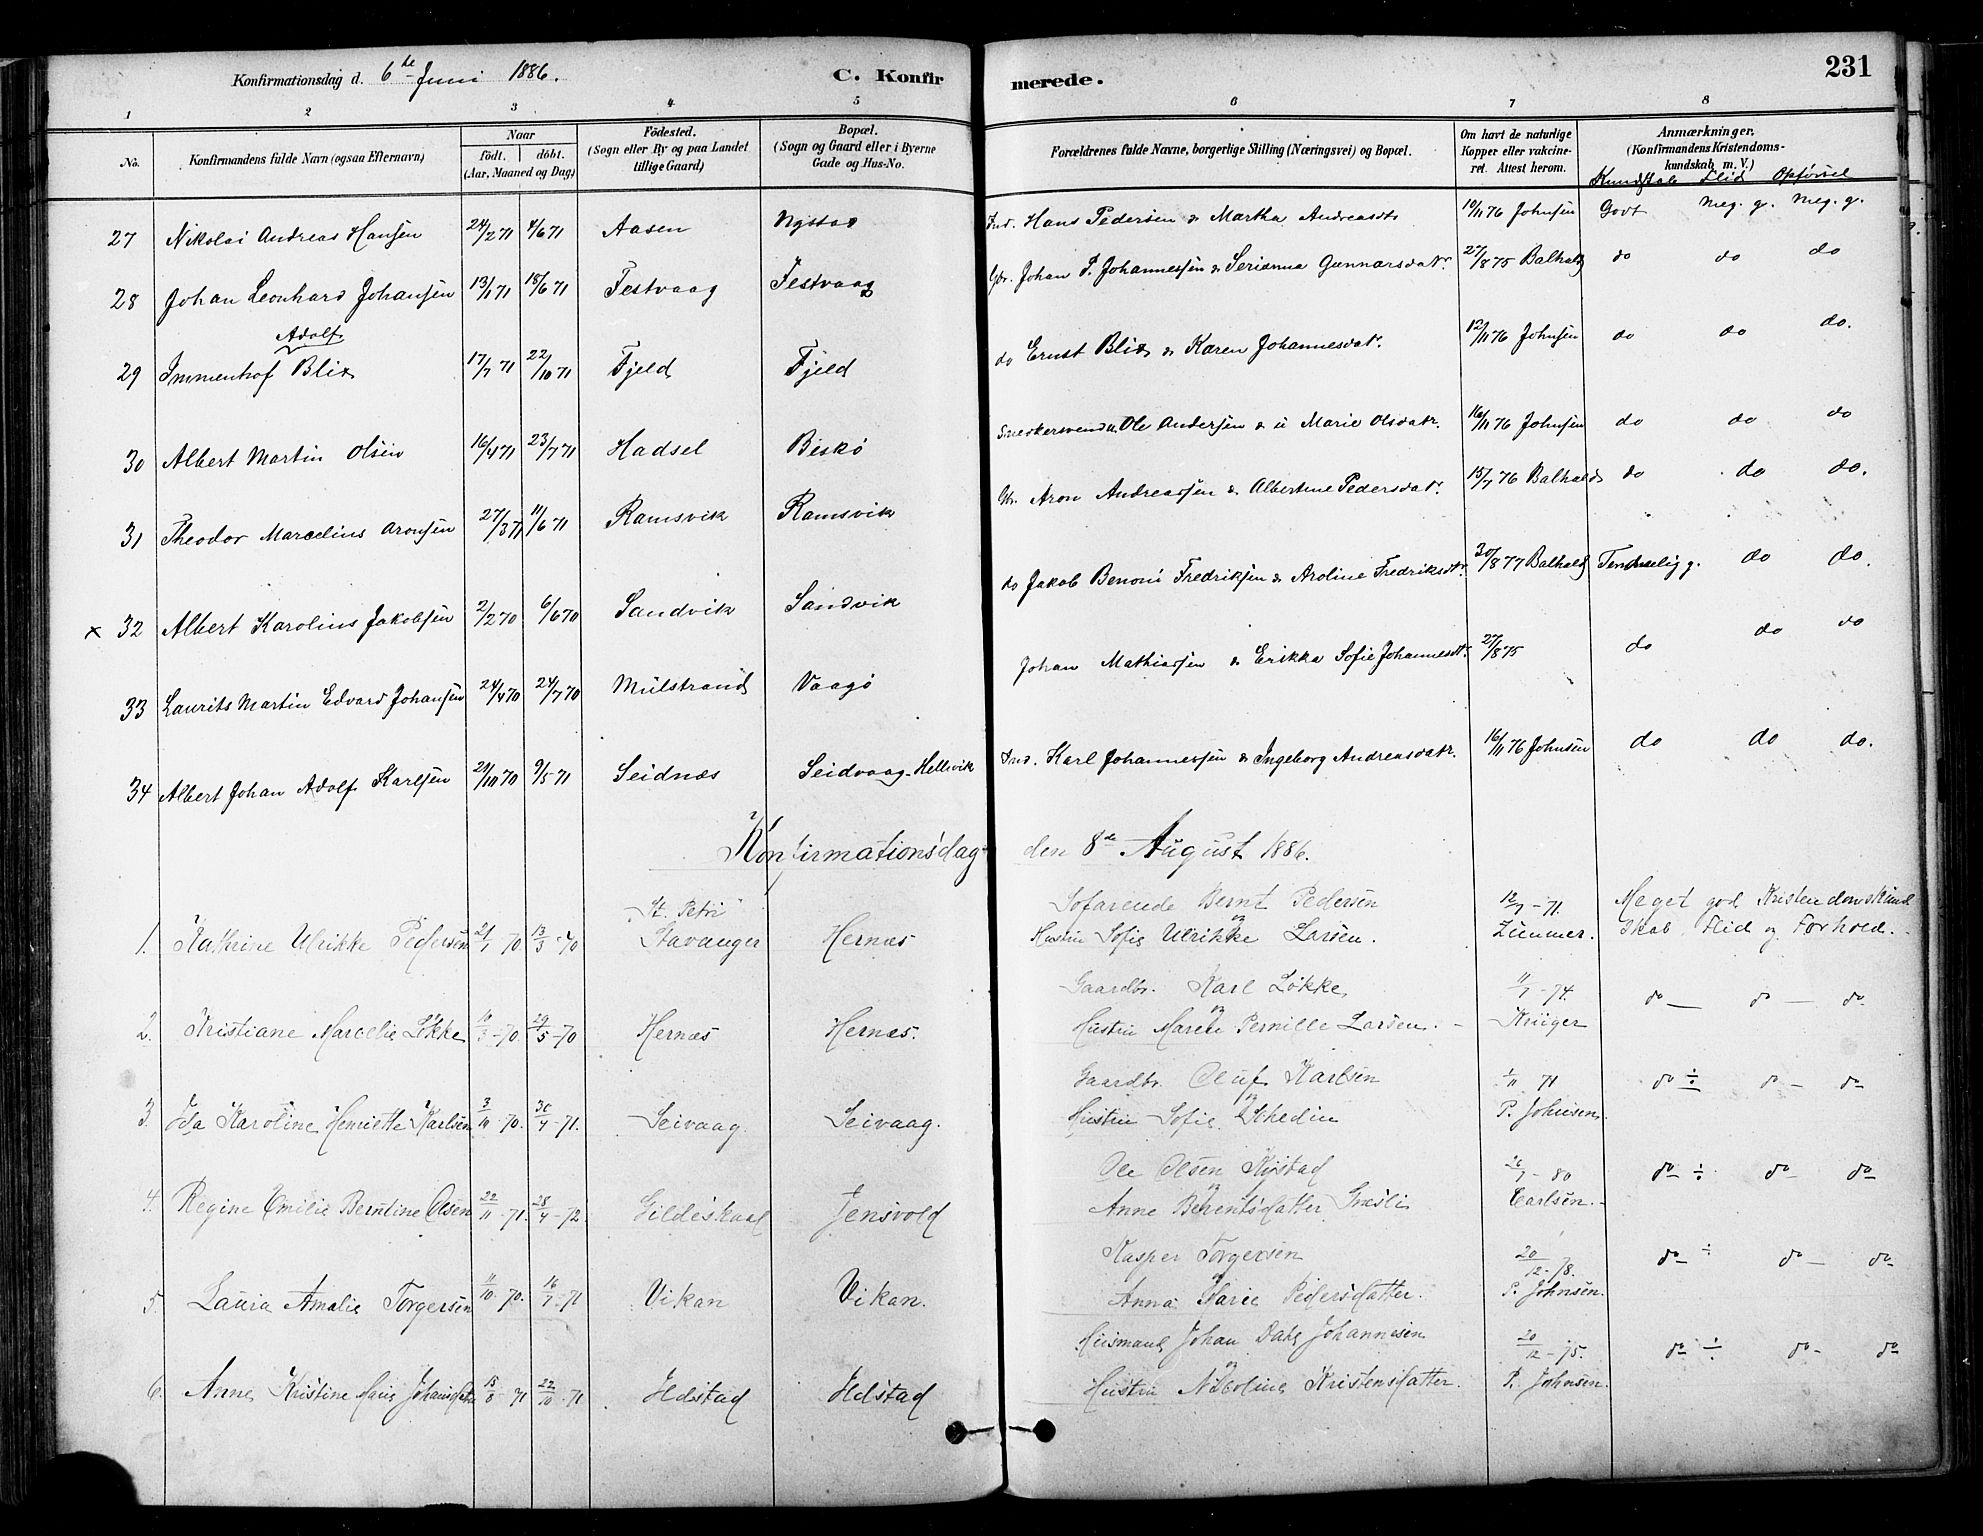 Konfirmationsdag d. 6te Juni 1886.
C. Konfirmerede.
231
1 2 3 4 5 6 7 8
No.
Konfirmandens fulde Navn (ogsaa Efternavn)
Naar
født. døbt.
(Aar, Maaned og Dag)
Fødested.
(Sogn eller By og paa Landet
tillige Gaard)
Bopæl.
(Sogn og Gaard eller i Byerne
Gade og Hus-No.
Forældrenes fulde Navne, borgerlige Stilling (Næringsvei) og Bopæl.
Om havt de naturlige
Kopper eller vakcine-
ret. Attest herom.
Anmærkninger.
(Konfirmandens Kristendoms-
kundskab m. V.)
Kundskab Flid Opførsel
27 Nikolai Andreas Hansen 24/2 71 4/6 71 Aasen Nystad Ind. Hans Pedersen & Martha Andreasdtr 10/11 76 Johnsen Godt Meg. g. Meg. g.
28 Johan Leonhard Johansen 13/1 71 18/6 71 Festvaag Festvaag Gbr. Johan P. Johannessen & Serianna Gunnarsdatr. 27/8 75 Balhald do do do
Adolf
29 Immenhof Blix 17/7 71 22/10 71 Fjeld Fjeld do Ernst Blix & Karen Johannesdatr. 12/11 76 Johnsen do do do.
30 Albert Martin Olsen 16/4 71 23/7 71 Hadsel Beskø Snedkersvend u. Ole Andersen & u Marie Olsdatr. 16/11 76 Johnsen do do do
31 Theodor Marcelius Aronsen 27/3 71 11/6 71 Ramsvik Ramsvik Gbr. Aron Andreassen & Albertine Pedersdatr. 15/7 76 Balhald do do do.
x 32 Albert Karolius Jakobsen 2/2 70 6/6 70 Sandvik Sandvik do Jakob Benoni Fredriksen & Aroline Fredriksdtr. 30/8 77 Balhald Temmelig g. do do.
33 Laurits Martin Edvard Johansen 24/4 70 24/7 70 Mulstrand Vaagø Johan Mathiassen & Erikka Sofie Johannesdtr. 27/8 75 do do do
34 Albert Johan Adolf Karlsen 29/10 70 9/5 71 Seidnæs Seidvaag-Hellevik Ind. Karl Johannessen & Ingeborg Andreasdatr. 16/11 76 Johnsen do do do.
Konfirmationsdag den 8de August 1886.
St. Petri Sofarende Bernt Pedersen 12/7 - 71. Meget god Kristendomskund
1. Kathrine Ulrikke Pedersen 21/1 70 13/3 - 70 Stavanger Hernæs og Hustru Sofie Ulrikke Larsen. Zimmer. skab, Flid og Forhold.
Gaardbr. Karl Løkke 11/7 - 74.
2. Kristiane Marcelie Løkke 10/3 - 70. 29/5 - 70 Hernæs Hernæs. og Hustru Marete Pernille Larsen. Krüger do do do
Gaardbr. Oluf Karlsen 1/11 71 do do do
3. Ida Karoline Henriette Karlsen 3/10 - 70. 30/4 - 71. Seivaag. Seivaag. og Hustru Sofie Schedin P. Johnsen.
Ole Olsen Nystad 26/7 - 80 do do do
4. Regine Emilie Berntine Olsen 22/11 - 71. 28/4 - 72. Gildeskaal Jensvold og Anne Berentsdatter Græsli Carlsen.
Kasper Torgersen 20/12 - 78. do do do
5. Lauia Amalie Torgersen 11/10 - 70. 16/7 - 71 Vikan Vikan. og Anna Marie Pedersdatter. P. Johnsen.
Husmand Johan Dats Johannesen 20/12 - 75. do do do
6. Anne Kristine Marie Johansdatter 15/8 - 71 22/10 - 71 Ildstad Ildstad og Hustru Nikoline Kristensdatter. P. Johnsen.